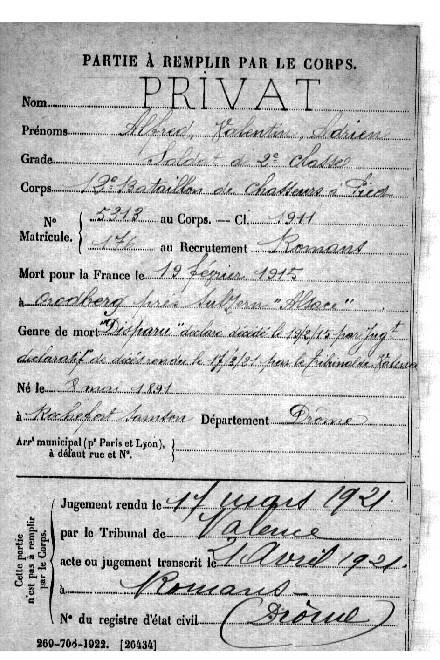 PARTIE À REMPLIR PAR LE CORPS.
Nom PRIVAT
Prénoms Alfred, Valentin, Adrien
Grade Soldat de 2e classe
Corps 12e Bataillon de Chasseurs à Pied
No Matricule. { 5313 au Corps. — Cl. 1911
176 au Recrutement Romans
Mort pour la France le 19 février 1915
à près "Alsace".
Genre de mort "Disparu" déclaré décédé le 19/2/15 par jugt
déclaratif de décès rendu le 17/3/21 par le tribunal de Valence
Né le 8 mai 1891
à Rochefort Samson Département Drome
Arrt municipal (pr Paris et Lyon), à défaut rue et No. }
Cette partie n'est pas à remplir par le Corps.
Jugement rendu le 17 mars 1921
par le Tribunal de Valence
acte ou jugement transcrit le 21 Avril 1921.
à Romans
No du registre d'état civil (Drôme)
269-708-1922. [26434]